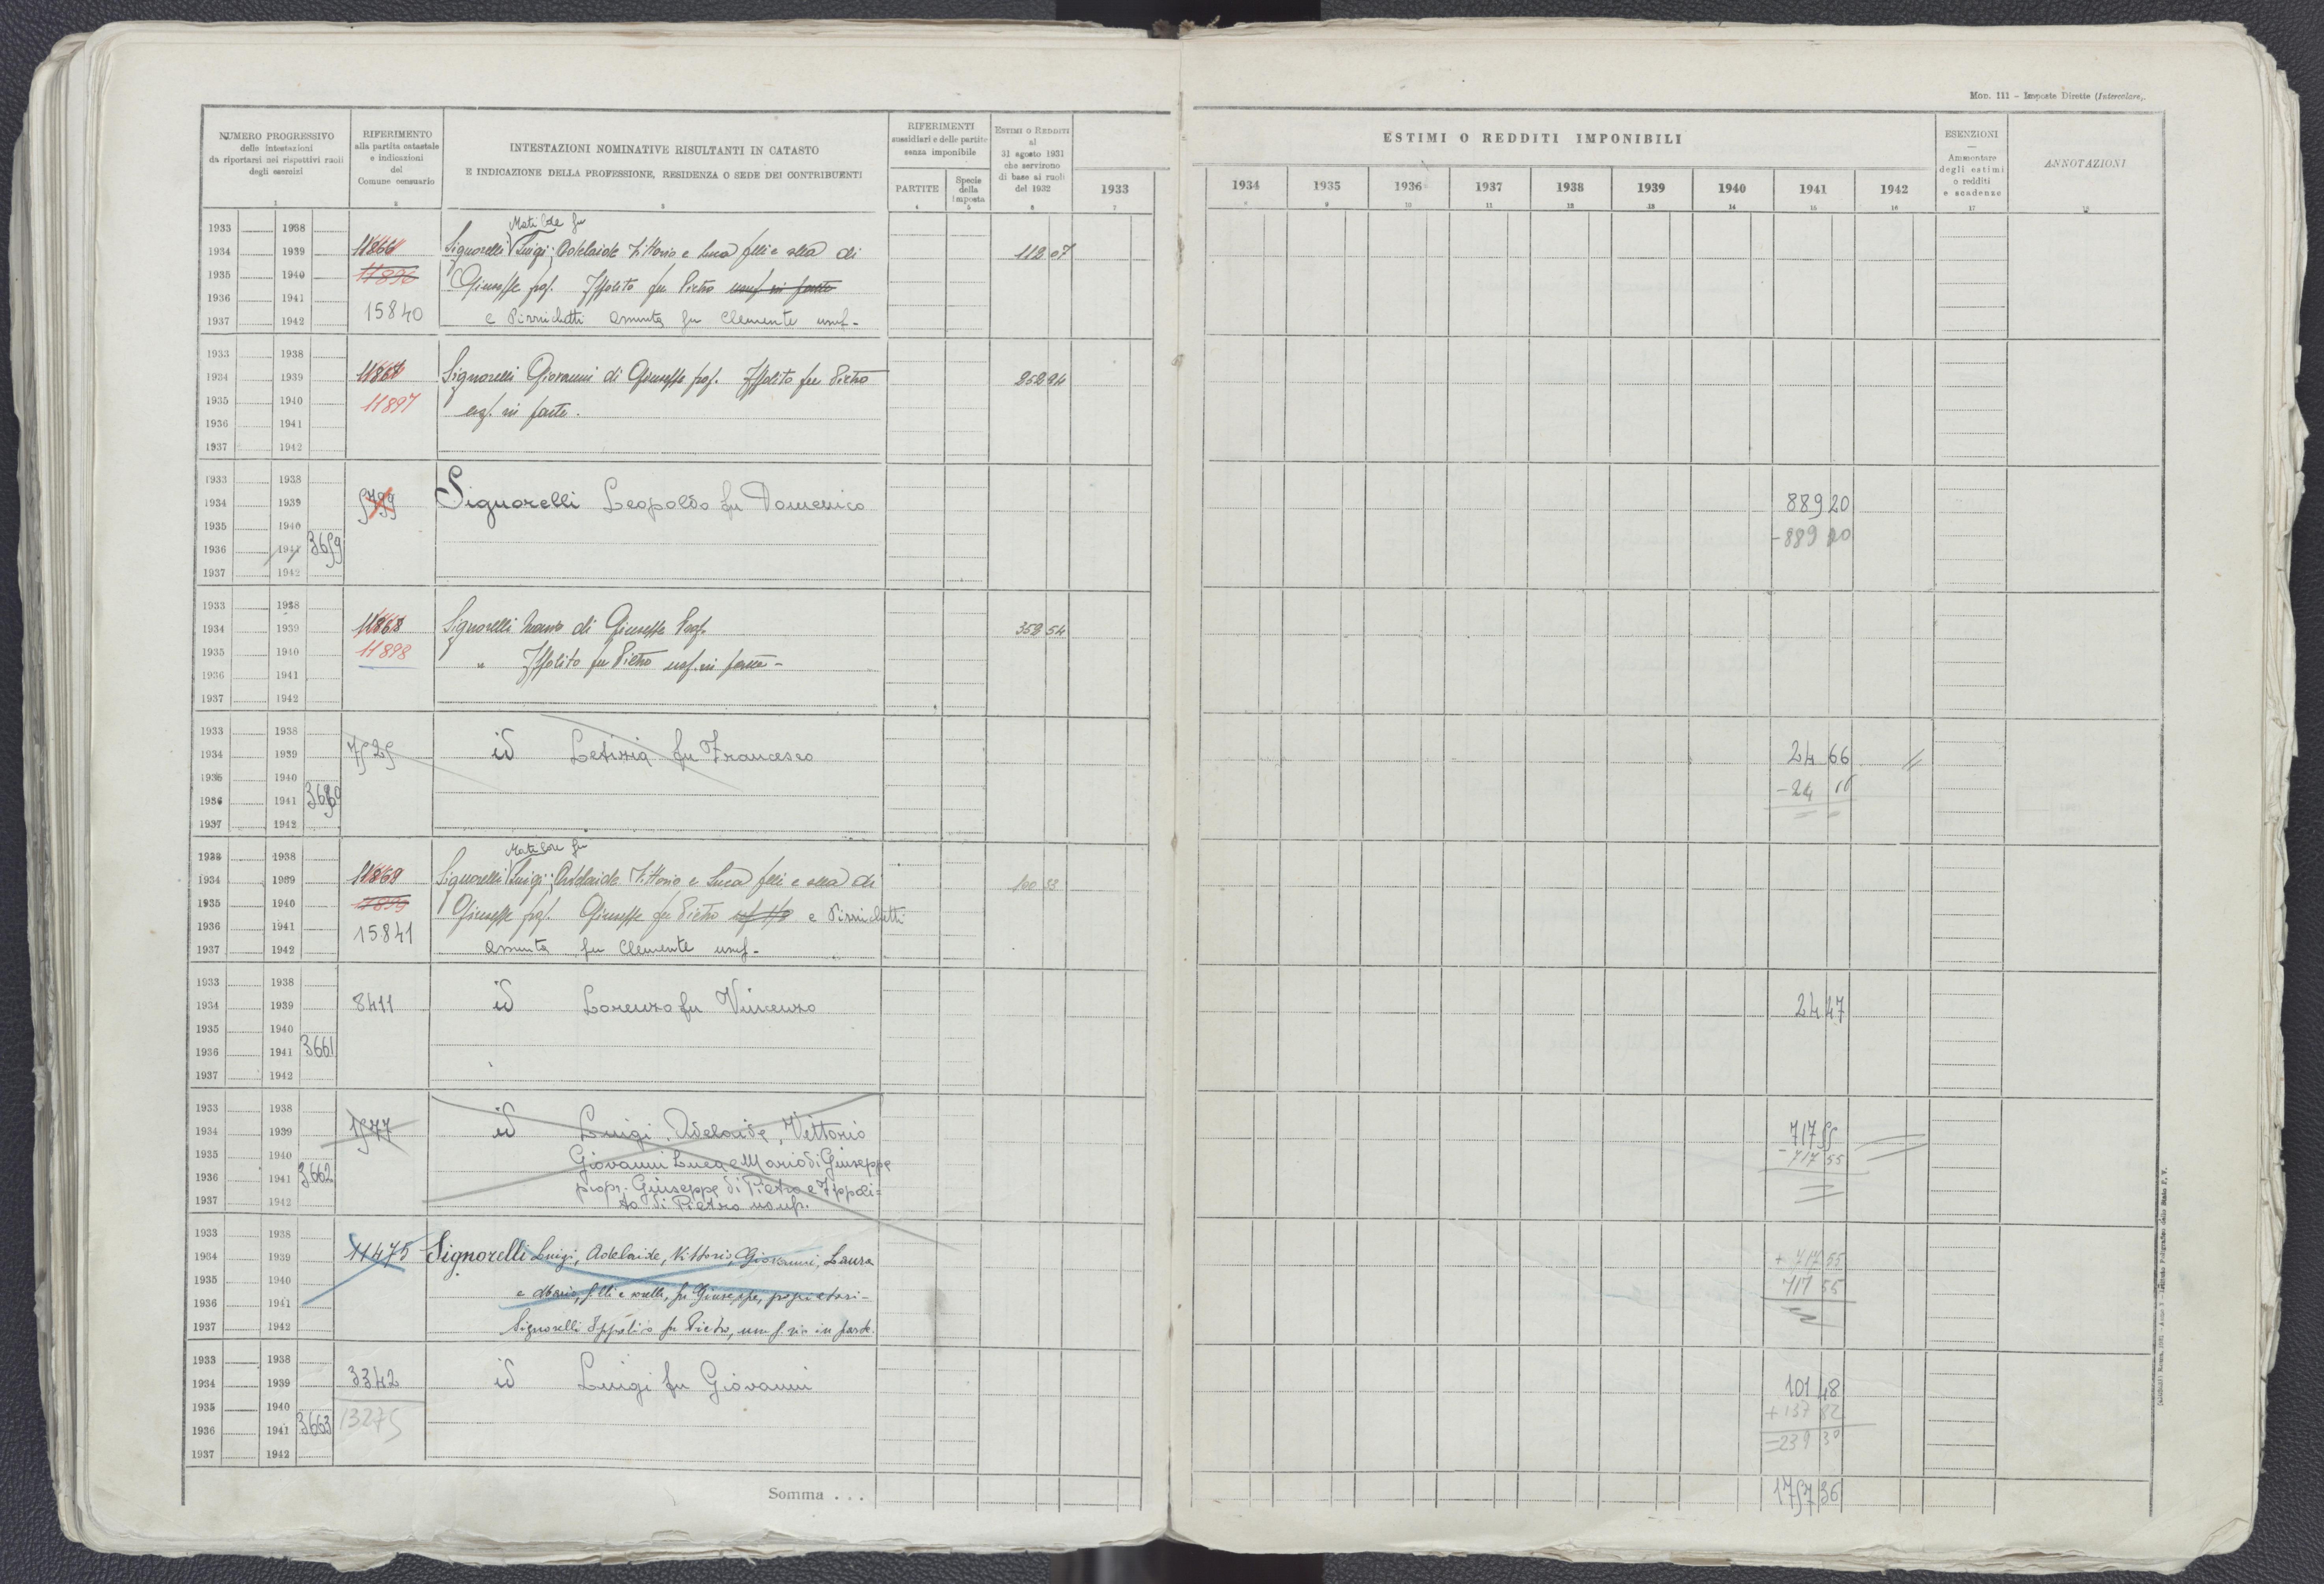 Mod. 111 - Imposte Dirette (Intercalare).
NUMERO PROGRESSIVO
delle intestazioni
da riportarsi nei rispettivi ruoli
degli esercizi
RIFERIMENTO
alla partita catastale
e indicazioni
del
Comune censuario
INTESTAZIONI NOMINATIVE RISULTANTI IN CATASTO
E INDICAZIONE DELLA PROFESSIONE, RESIDENZA O SEDE DEI CONTRIBUENTI
RIFERIMENTI
sussidiari e delle partite
senza imponibile
PARTITE
Specie
della
Imposta
ESTIMI O REDDITI
al
31 agosto 1931
che servirono
di base ai ruoli
del 1932
ESTIMI O REDDITI IMPONIBILI
1933 1934 1935 1936 1937 1938 1939 1940 1941 1942
ESENZIONI
Ammontare
degli estimi
o redditi
e scadenze
ANNOTAZIONI
1 2 3 4 5 6 7 8 9 10 11 12 13 14 15 16 17 18
1933 1938
Matilde fu
1934 1939 11866 Signorelli Luigi; Adelaide Vittorio e Luca flli e slla di 112 07
1935 1940 11896 Giuseppe prop. Ippolito fu Pietro usuf. in parte
1936 1941 15840
1937 1942 e Pirnichetti Assunta fu Clemente usuf.-
1933 1938
1934 1939 11867 Signorelli Giovanni di Giuseppe prop. Ippolito fu Pietro
1935 1940 11897 usuf. in parte.
1936 1941
1937 1942
1933 1938
1934 1939 5799 Signorelli Leopoldo fu Domenico 889 20
1935 1940
1936 1941 3659 -889 20
1937 1942
1933 1938
1934 1939 11868 Signorelli Mario di Giuseppe Prop. 352 54
1935 1940 11898 " Ippolito fu Pietro usuf. in parte -
1936 1941
1937 1942
1933 1938
1934 1939 7525 id Letizia fu Francesco 24 66
1935 1940
1936 1941 -24 66
1937 1942
1933 1938
Matilde fu
1934 1939 11869 Signorelli Luigi; Adelaide Vittorio e Luca flli e slla di 100 53
1935 1940 11899 Giuseppe prop. Giuseppe fu Pietro e Pirnichetti
1936 1941 15841
1937 1942 Assunta fu Clemente usuf.-
1933 1938
1934 1939 8411 id Lorenzo fu Vincenzo 24 47
1935 1940
1936 1941 3661
1937 1942
1933 1938
1934 1939 1577 id Luigi, Adelaide, Vittorio 717 55
1935 1940 Giovanni Luca e Mario di Giuseppe -717 55
1936 1941 3662 propr. Giuseppe di Pietro e Ippoli=
1937 1942 to di Pietro usuf.
1933 1938
1934 1939 11475 Signorelli Luigi, Adelaide, Vittorio, Giovanni, Laura + 717 55
1935 1940 717 55
1936 1941 e Mario, f.lli e sorelle, fu Giuseppe, proprietari -
1937 1942 Signorelli Ippolito fu Pietro, usuf.rio in parte.
1933 1938
1934 1939 3342 id Luigi fu Giovanni 101 48
1935 1940 13275 +137 82
1936 1941 3663 =239 30
1937 1942
Somma . . . 1757 36